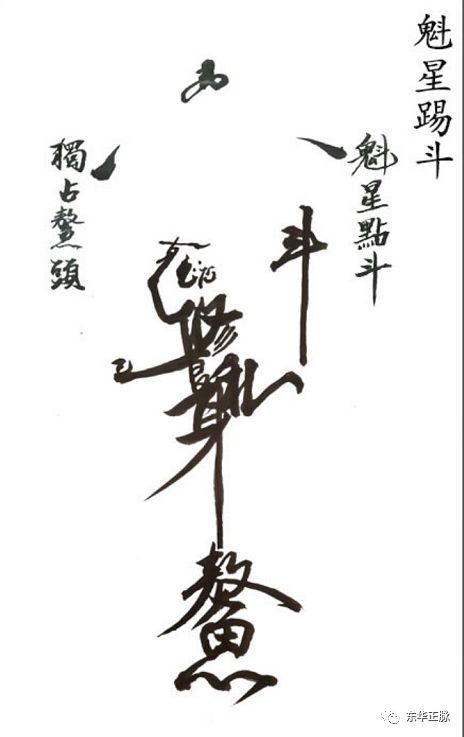 魁星踢斗
魁星點斗
斗
修
身
鰲
獨占鰲頭
东华正脉